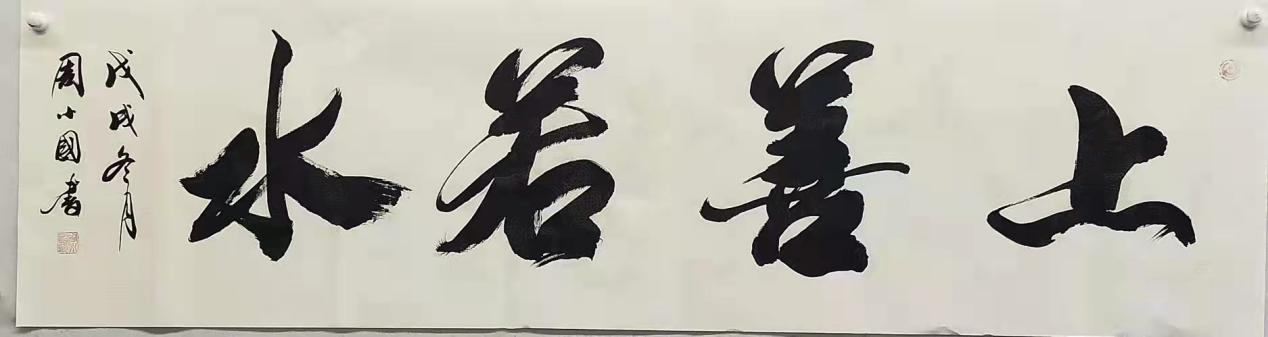 上善若水
戊戌冬月
周小國書